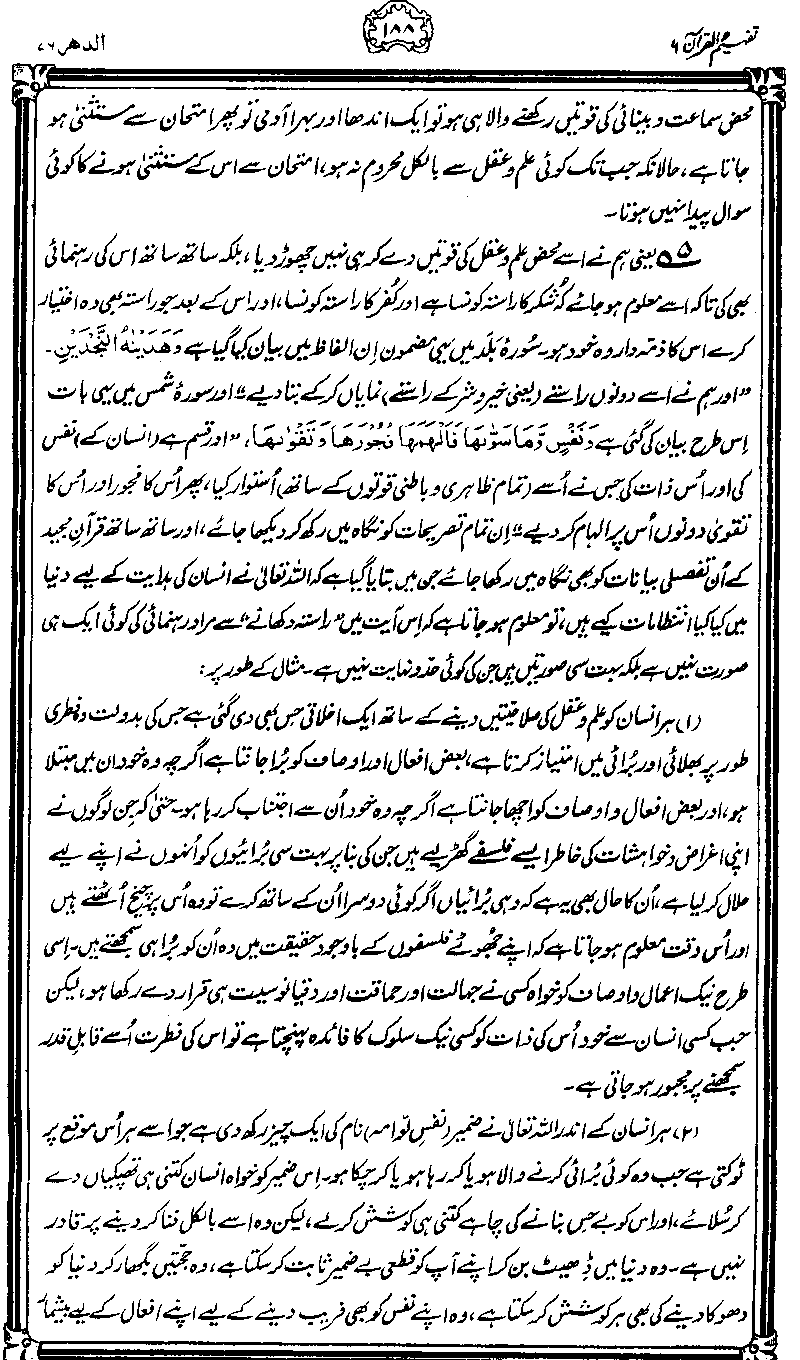 تفہیم القرآن ۶
۱۸۸
الدھر ۷۶
محض سماعت و بینائی کی قوتیں رکھنے والا ہی ہو تو ایک اندھا اور بہرا آدمی تو پھر امتحان سے مستثنیٰ ہو
جاتا ہے، حالانکہ جب تک کوئی علم و عقل سے بالکل محروم نہ ہو، امتحان سے اس کے مستثنیٰ ہونے کا کوئی
سوال پیدا نہیں ہوتا۔
۵؎ یعنی ہم نے اسے محض علم و عقل کی قوتیں دے کر ہی نہیں چھوڑ دیا، بلکہ ساتھ ساتھ اس کی رہنمائی
بھی کی تاکہ اسے معلوم ہو جائے کہ شُکر کا راستہ کونسا ہے اور کُفر کا راستہ کونسا، اور اس کے بعد جو راستہ بھی وہ اختیار
کرے اس کا ذمہ دار وہ خود ہو۔ سُورۂ بَلَد میں یہی مضمون اِن الفاظ میں بیان کیا گیا ہے وَھَدَیْنٰہُ النَّجْدَیْنِ۔
”اور ہم نے اسے دونوں راستے (یعنی خیر و شر کے راستے) نمایاں کر کے بتا دیے“ اور سورۂ شمس میں یہی بات
اِس طرح بیان کی گئی ہے وَنَفْسٍ وَّمَا سَوّٰىھَا فَاَلْھَمَھَا فُجُوْرَھَا وَتَقْوٰىھَا، ”اور قسم ہے (انسان کے) نفس
کی اور اُس ذات کی جس نے اُسے (تمام ظاہری و باطنی قوتوں کے ساتھ) اُستوار کیا، پھر اُس کا فجور اور اُس کا
تقویٰ دونوں اُس پر الہام کر دیے“ اِن تمام تصریحات کو نگاہ میں رکھ کر دیکھا جائے، اور ساتھ ساتھ قرآنِ مجید
کے اُن تفصیلی بیانات کو بھی نگاہ میں رکھا جائے جن میں بتایا گیا ہے کہ اللہ تعالیٰ نے انسان کی ہدایت کے لیے دنیا
میں کیا کیا انتظامات کیے ہیں، تو معلوم ہو جاتا ہے کہ اِس آیت میں ”راستہ دکھانے“ سے مراد رہنمائی کی کوئی ایک ہی
صورت نہیں ہے بلکہ بہت سی صورتیں ہیں جن کی کوئی حد و نہایت نہیں ہے۔ مثال کے طور پر:
(۱) ہر انسان کو علم و عقل کی صلاحیتیں دینے کے ساتھ ایک اخلاقی حِس بھی دی گئی ہے جس کی بدولت وہ فطری
طور پر بھلائی اور بُرائی میں امتیاز کرتا ہے، بعض افعال اور اوصاف کو بُرا جانتا ہے اگرچہ وہ خود ان میں مبتلا
ہو، اور بعض افعال و اوصاف کو اچھا جانتا ہے اگرچہ وہ خود اُن سے اجتناب کر رہا ہو۔ حتیٰ کہ جن لوگوں نے
اپنی اغراض و خواہشات کی خاطر ایسے فلسفے گھڑ لیے ہیں جن کی بنا پر بہت سی بُرائیوں کو اُنہوں نے اپنے لیے
حلال کر لیا ہے، اُن کا حال بھی یہ ہے کہ وہی بُرائیاں اگر کوئی دوسرا اُن کے ساتھ کرے تو وہ اُس پر چیخ اُٹھتے ہیں
اور اُس وقت معلوم ہو جاتا ہے کہ اپنے جُھوٹے فلسفوں کے باوجود حقیقت میں وہ اُن کو بُرا ہی سمجھتے ہیں۔ اِسی
طرح نیک اعمال و اوصاف کو خواہ کسی نے جہالت اور حماقت اور دقیانوسیت ہی قرار دے رکھا ہو، لیکن
جب کسی انسان سے خود اُس کی ذات کو کسی نیک سلوک کا فائدہ پہنچتا ہے تو اس کی فطرت اُسے قابلِ قدر
سمجھنے پر مجبور ہو جاتی ہے۔
(۲) ہر انسان کے اندر اللہ تعالیٰ نے ضمیر (نفسِ لوّامہ) نام کی ایک چیز رکھ دی ہے جو اسے ہر اُس موقع پر
ٹوکتی ہے جب وہ کوئی بُرائی کرنے والا ہو یا کر رہا ہو یا کر چکا ہو۔ اِس ضمیر کو خواہ انسان کتنی ہی تھپکیاں دے
کر سُلائے، اور اس کو بے حس بنانے کی چاہے کتنی ہی کوشش کر لے، لیکن وہ اسے بالکل فنا کر دینے پر قادر
نہیں ہے۔ وہ دنیا میں ڈھیٹ بن کر اپنے آپ کو قطعی بے ضمیر ثابت کر سکتا ہے، وہ حجتیں بگھار کر دنیا کو
دھوکا دینے کی بھی ہر کوشش کر سکتا ہے، وہ اپنے نفس کو بھی فریب دینے کے لیے اپنے افعال کے لیے بیشمار